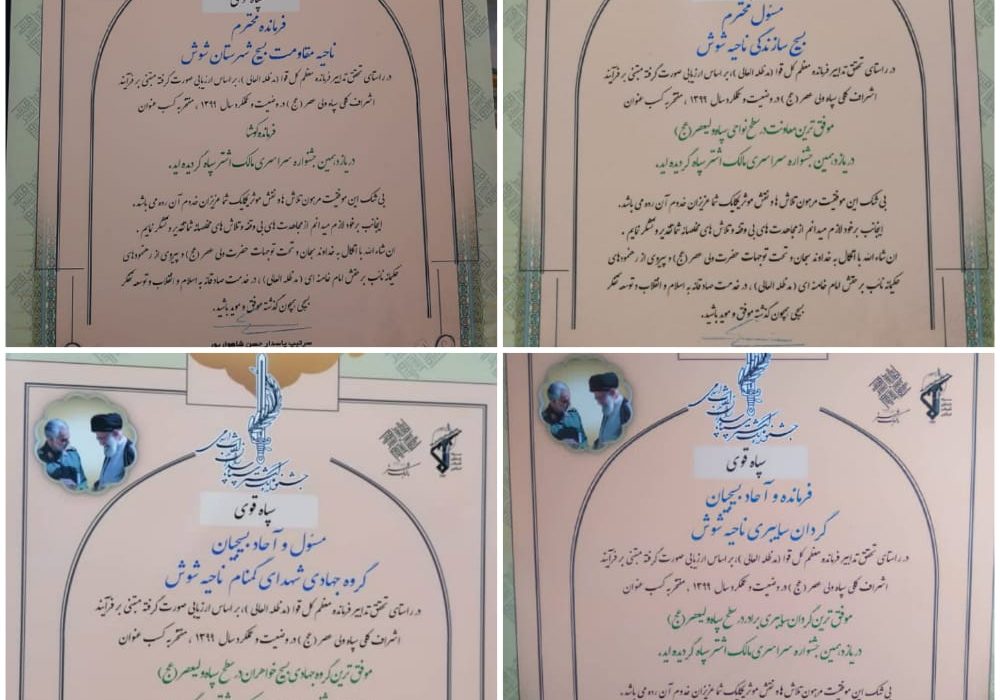 سپاه قوی
فرمانده محترم
ناحیه مقاومت بسیج شهرستان شوش
در راستای تحقق تدابیر فرمانده معظم کل قوا (مدظله العالی)، بر اساس ارزیابی صورت گرفته مبتنی بر فرآیند
اشراف کلی سپاه ولی عصر (عج) در وضعیت و عملکرد سال ۱۳۹۹، مفتخر به کسب عنوان
فرمانده کوشا
در یازدهمین جشنواره سراسری مالک اشتر سپاه گردیده اید.
بی شک این موفقیت مرهون تلاش ها و نقش موثر یکایک شما عزیزان خدوم آن رده می باشد.
اینجانب بر خود لازم میدانم از مجاهدت های بی وقفه و تلاش های مخلصانه شما تقدیر و تشکر نمایم.
ان شاء الله با اتکال به خداوند سبحان و تحت توجهات حضرت ولی عصر (عج) و پیروی از رهنمودهای
حکیمانه نائب بر حقش امام خامنه ای (مدظله العالی)، در خدمت صادقانه به اسلام و انقلاب و توسعه تفکر
بسیجی همچون گذشته موفق و موید باشید.
سرتیپ پاسدار حسن شاهوارپور
مسئول محترم
بسیج سازندگی ناحیه شوش
در راستای تحقق تدابیر فرمانده معظم کل قوا (مدظله العالی)، بر اساس ارزیابی صورت گرفته مبتنی بر فرآیند
اشراف کلی سپاه ولی عصر (عج) در وضعیت و عملکرد سال ۱۳۹۹، مفتخر به کسب عنوان
موفق ترین معاونت در سطح نواحی سپاه ولیعصر (عج)
در یازدهمین جشنواره سراسری مالک اشتر سپاه گردیده اید.
بی شک این موفقیت مرهون تلاش ها و نقش موثر یکایک شما عزیزان خدوم آن رده می باشد.
اینجانب بر خود لازم میدانم از مجاهدت های بی وقفه و تلاش های مخلصانه شما تقدیر و تشکر نمایم.
ان شاء الله با اتکال به خداوند سبحان و تحت توجهات حضرت ولی عصر (عج) و پیروی از رهنمودهای
حکیمانه نائب بر حقش امام خامنه ای (مدظله العالی)، در خدمت صادقانه به اسلام و انقلاب و توسعه تفکر
بسیجی همچون گذشته موفق و موید باشید.
سپاه قوی
مسئول و آحاد بسیجیان
گروه جهادی شهدای گمنام ناحیه شوش
در راستای تحقق تدابیر فرمانده معظم کل قوا (مدظله العالی)، بر اساس ارزیابی صورت گرفته مبتنی بر فرآیند
اشراف کلی سپاه ولی عصر (عج) در وضعیت و عملکرد سال ۱۳۹۹، مفتخر به کسب عنوان
موفق ترین گروه جهادی بسیج خواهران در سطح سپاه ولیعصر (عج)
سپاه قوی
فرمانده و آحاد بسیجیان
گردان سایبری ناحیه شوش
در راستای تحقق تدابیر فرمانده معظم کل قوا (مدظله العالی)، بر اساس ارزیابی صورت گرفته مبتنی بر فرآیند
اشراف کلی سپاه ولی عصر (عج) در وضعیت و عملکرد سال ۱۳۹۹، مفتخر به کسب عنوان
موفق ترین گردان سایبری برادر در سطح سپاه ولیعصر (عج)
در یازدهمین جشنواره سراسری مالک اشتر سپاه گردیده اید.
بی شک این موفقیت مرهون تلاش ها و نقش موثر یکایک شما عزیزان خدوم آن رده می باشد.